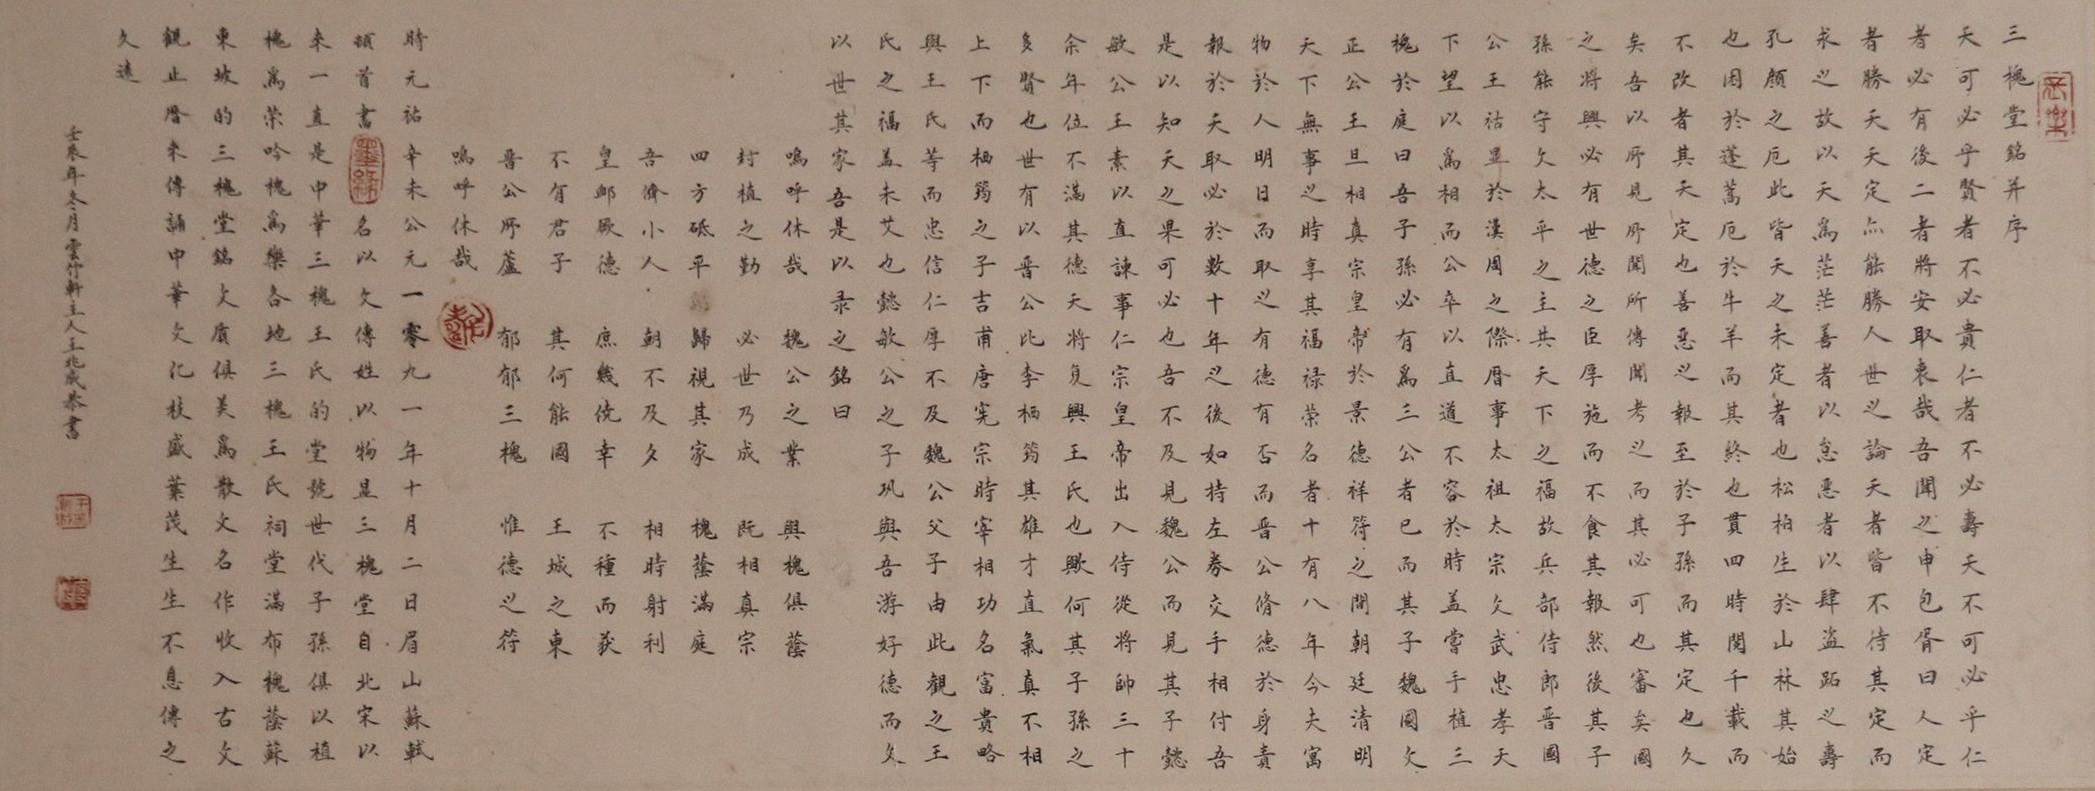 三槐堂銘并序
天可必乎賢者不必貴仁者不必壽天不可必乎仁
者必有後二者將安取衷哉吾聞之申包胥曰人定
者勝天天定亦能勝人世之論天者皆不待其定而
求之故以天為茫茫善者以怠惡者以肆盜跖之壽
孔顏之厄此皆天之未定者也松柏生於山林其始
也困於蓬蒿厄於牛羊而其終也貫四時閱千載而
不改者其天定也善惡之報至於子孫而其定也久
矣吾以所見所聞所傳聞考之而其必可也審矣國
之將興必有世德之臣厚施而不食其報然後其子
孫能守文太平之主共天下之福故兵部侍郎晉國
公王祜顯於漢周之際曆事太祖太宗文武忠孝天
下望以為相而公卒以直道不容於時蓋嘗手植三
槐於庭曰吾子孫必有為三公者已而其子魏國文
正公王旦相真宗皇帝於景德祥符之間朝廷清明
天下無事之時享其福祿榮名者十有八年今夫寓
物於人明日而取之有德有否而晉公脩德於身責
報於天取必於數十年之後如持左券交手相付吾
是以知天之果可必也吾不及見魏公而見其子懿
敏公王素以直諫事仁宗皇帝出入侍從將帥三十
余年位不滿其德天將复興王氏也歟何其子孫之
多賢也世有以晉公比李栖筠其雄才直氣真不相
上下而栖筠之子吉甫唐宪宗時宰相功名富貴略
與王氏等而忠信仁厚不及魏公父子由此觀之王
氏之福盖未艾也懿敏公之子巩與吾游好德而文
以世其家吾是以录之銘曰
嗚呼休哉 魏公之業 與槐俱蔭
封植之勤 必世乃成 既相真宗
四方砥平 歸視其家 槐蔭滿庭
吾儕小人 朝不及夕 相時射利
皇卹厥德 庶幾僥幸 不種而获
不有君子 其何能國 王城之東
晉公所蘆 郁郁三槐 惟德之符
嗚呼休哉
時元祐辛未公元一零九一年十月二日眉山蘇軾
頓首書 名以文傳姓以物显三槐堂自北宋以
来一直是中華三槐王氏的堂號世代子孫俱以植
槐為荣吟槐為樂各地三槐王氏祠堂滿布槐蔭蘇
東坡的三槐堂銘文质俱美為散文名作收入古文
觀止曆来傳誦中華文化枝盛葉茂生生不息傳之
久遠
年冬月雲竹軒主人王兆成恭書